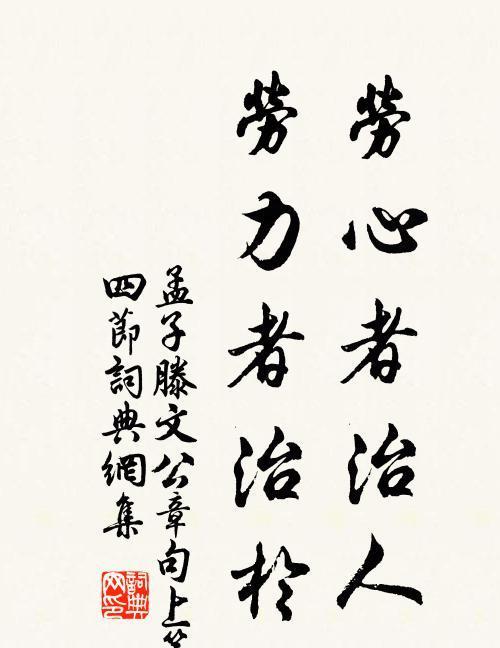 勞心者治人
勞力者治於
孟子滕文公章句上第
四節詞典網集
詞典网印